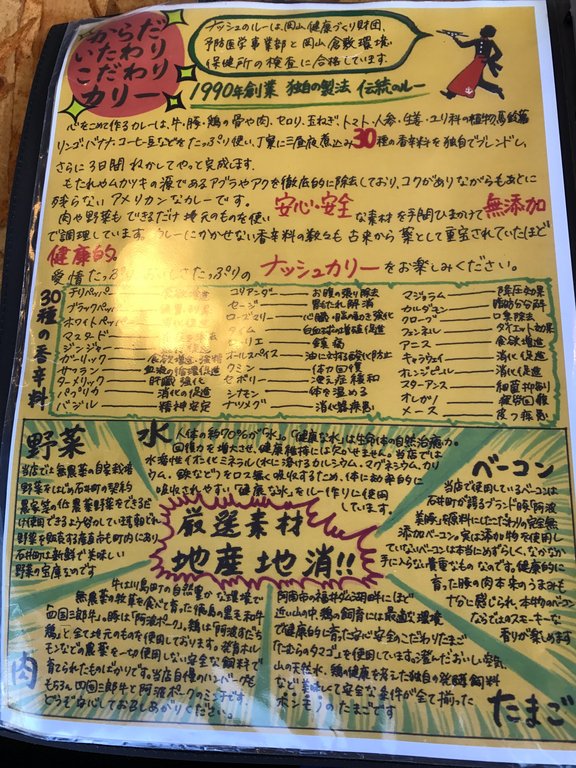 からだ
いたわり
こだわり
カリー
ナッシュのルーは、岡山健康づくり財団、
予防医学事業部と岡山倉敷環境
保健所の検査に合格しています。
1990年創業 独自の製法 伝統のルー
心をこめて作るカレーは、牛・豚・鶏の骨や肉、セロリ、玉ねぎ、トマト、人参、生姜、ユリ科の植物
リンゴ、バナナ、コーヒー豆などをたっぷり使い、丁寧に三昼夜煮込み30種の香辛料を独自でブレンドし、
さらに3日間ねかしてやっと完成します。
もたれやムカツキの源であるアブラやアクを徹底的に除去しており、コクがありながらもあとに
残らないアメリカンなカレーです。
肉や野菜もできるだけ地元のものを使い 安心・安全な素材を手間ひまかけて無添加
で調理しています。カレーにかかせない香辛料の数々も古来から薬として重宝されていたほど
健康的。
愛情たっぷり おいしさたっぷりの ナッシュカリーをお楽しみください。
30種の香辛料
チリペッパー
ブラックペッパー
ホワイトペッパー
マスタード
ジンジャー
ガーリック 食欲増進・強精
サフラン 血液の循環促進
ターメリック 肝臓強化
パプリカ 消化の促進
バジル 精神安定
コリアンダー お腹の張り除去
セージ 胃もたれ解消
ローズマリー 心臓・脳の働き強化
タイム 白血球の増殖促進
ローリエ 鎮痛
オールスパイス 油に対する酸化防止
クミン 体力回復
セボリー 更年症緩和
シナモン 体を温める
ナツメグ 消化器疾患
マジョラム 降圧効果
カルダモン 脂肪分分解
クローブ 口臭除去
フェンネル ダイエット効果
アニス 食欲増進
キャラウェイ 消化促進
オレンジピール 消化促進
スターアニス 細菌抑制
オレガノ 疲労回復
メース 皮フ疾患
野菜
当店では無農薬の自家栽培
野菜をはじめ石井町の契約
農家営の低農薬野菜をできるだ
け使用できるよう努めています。朝どれ
野菜を販売する産直市も町内にあり
石井町は新鮮で美味しい
野菜の宝庫なのです
水
人体の約70%が「水」。「健康な水」は生命体の自然治癒力、
回復力を増大させ、健康維持には欠かせません。当店では
水溶性イオン化ミネラル(水に溶けるカルシウム、マグネシウム、カリ
ウム、鉄など)をロス無く吸収するため、体に効率的に
吸収されやすい「健康な水」をルー作りに使用
しています。
ベーコン
当店で使用しているベーコンは
石井町が誇るブランド豚「阿波
美豚」を原料にしたこだわりの完全無
添加ベーコン。実は添加物を使用し
ていないベーコンは本当にめずらしく、なかなか
手に入らない貴重なものなのです。健康的に
育った豚の肉本来のうまみも
十分に感じられ、本物のベーコン
ならではのスモーキーな
香りが楽しめます
厳選素材
地産地消!!
肉
牛は川島町の自然豊かな環境で
無農薬の牧草を食べて育った徳島の黒毛和牛
「四国三郎牛」。豚は「阿波ポーク」。鶏は「阿波すだち
鶏」と全て地元のものを使用しております。発育ホル
モンなどの農薬を一切使用しない安全な飼料で
育てられたものばかりです。当店自慢のハンバーグも
もちろん四国三郎牛と阿波ポークのミンチです。
どうぞ安心しておめしあがりください。
たまご
阿南市の福井弘法湖畔にほど
近い山の中、鶏の飼育には最適な環境
で健康的に育った安心安全のこだわりたまご
「たむらのタマゴ」を使用しています。澄んだおいしい空気、
山の天然水、鶏の健康を考えた独自の発酵飼料
など、美味しくて安全な条件が全て揃った
ホンモノのたまごです